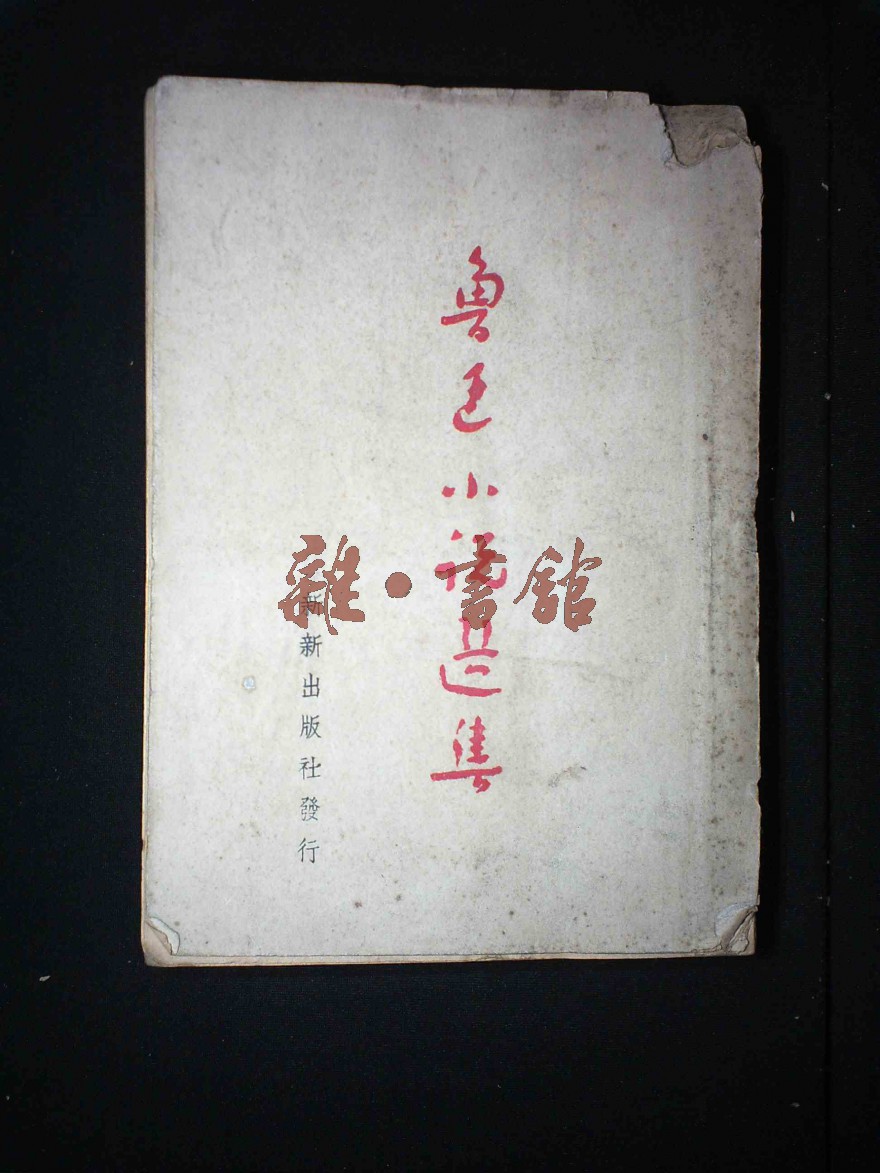 魯迅小說選集
新新出版社發行
雜·書館